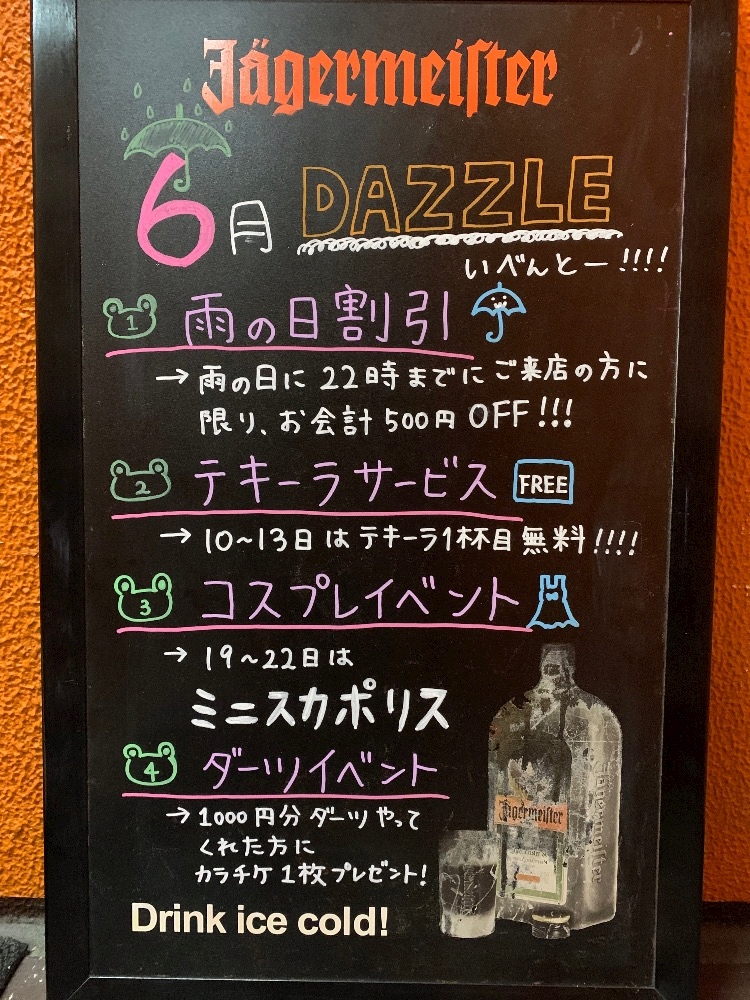 Jägermeiſter
6月 DAZZLE
いべんとー!!!!
1 雨の日割引
→ 雨の日に 22時までにご来店の方に
限り、お会計 500円 OFF!!!
2 テキーラサービス FREE
→ 10~13日は テキーラ1杯目 無料!!!!
3 コスプレイベント
→ 19~22日は
ミニスカポリス
4 ダーツイベント
→ 1000円分 ダーツ やって
くれた方に
カラチケ 1枚 プレゼント!
Jägermeiſter
Jägermeiſter
Drink ice cold!